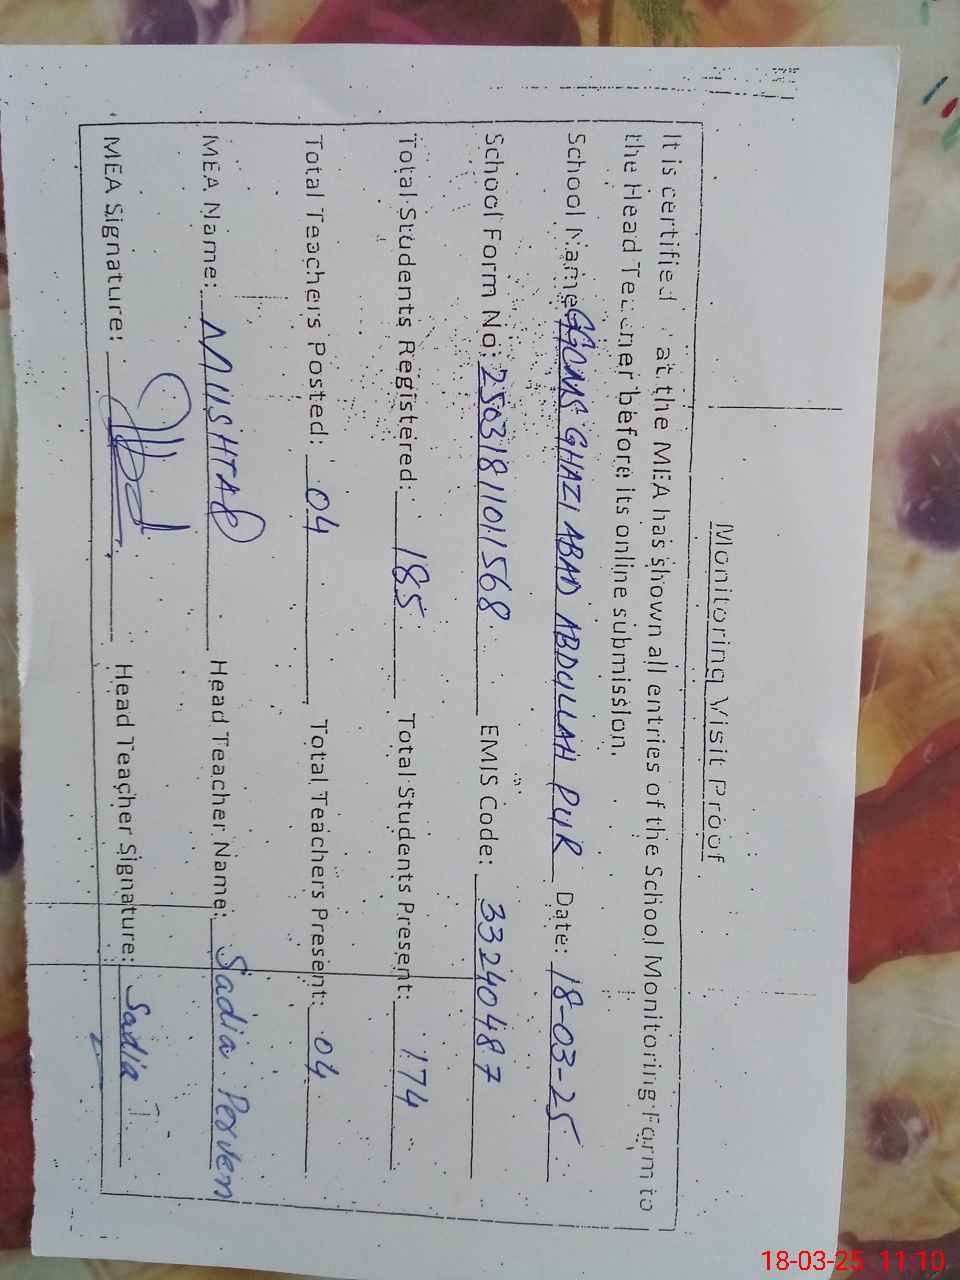 Monitoring Visit Proof
It is certified that the MEA has shown all entries of the School Monitoring Form to
the Head Teacher before its online submission.
School Name: GGCMS GHAZI ABAD ABDULLAH PUR Date: 18-03-25
School Form No: 25031811011568 EMIS Code: 33240487
Total Students Registered: 185 Total Students Present: 174
Total Teachers Posted: 04 Total Teachers Present: 04
MEA Name: MUSHTAQ Head Teacher Name: Sadia Perven
MEA Signature: Head Teacher Signature: Sadia
18-03-25 11:10